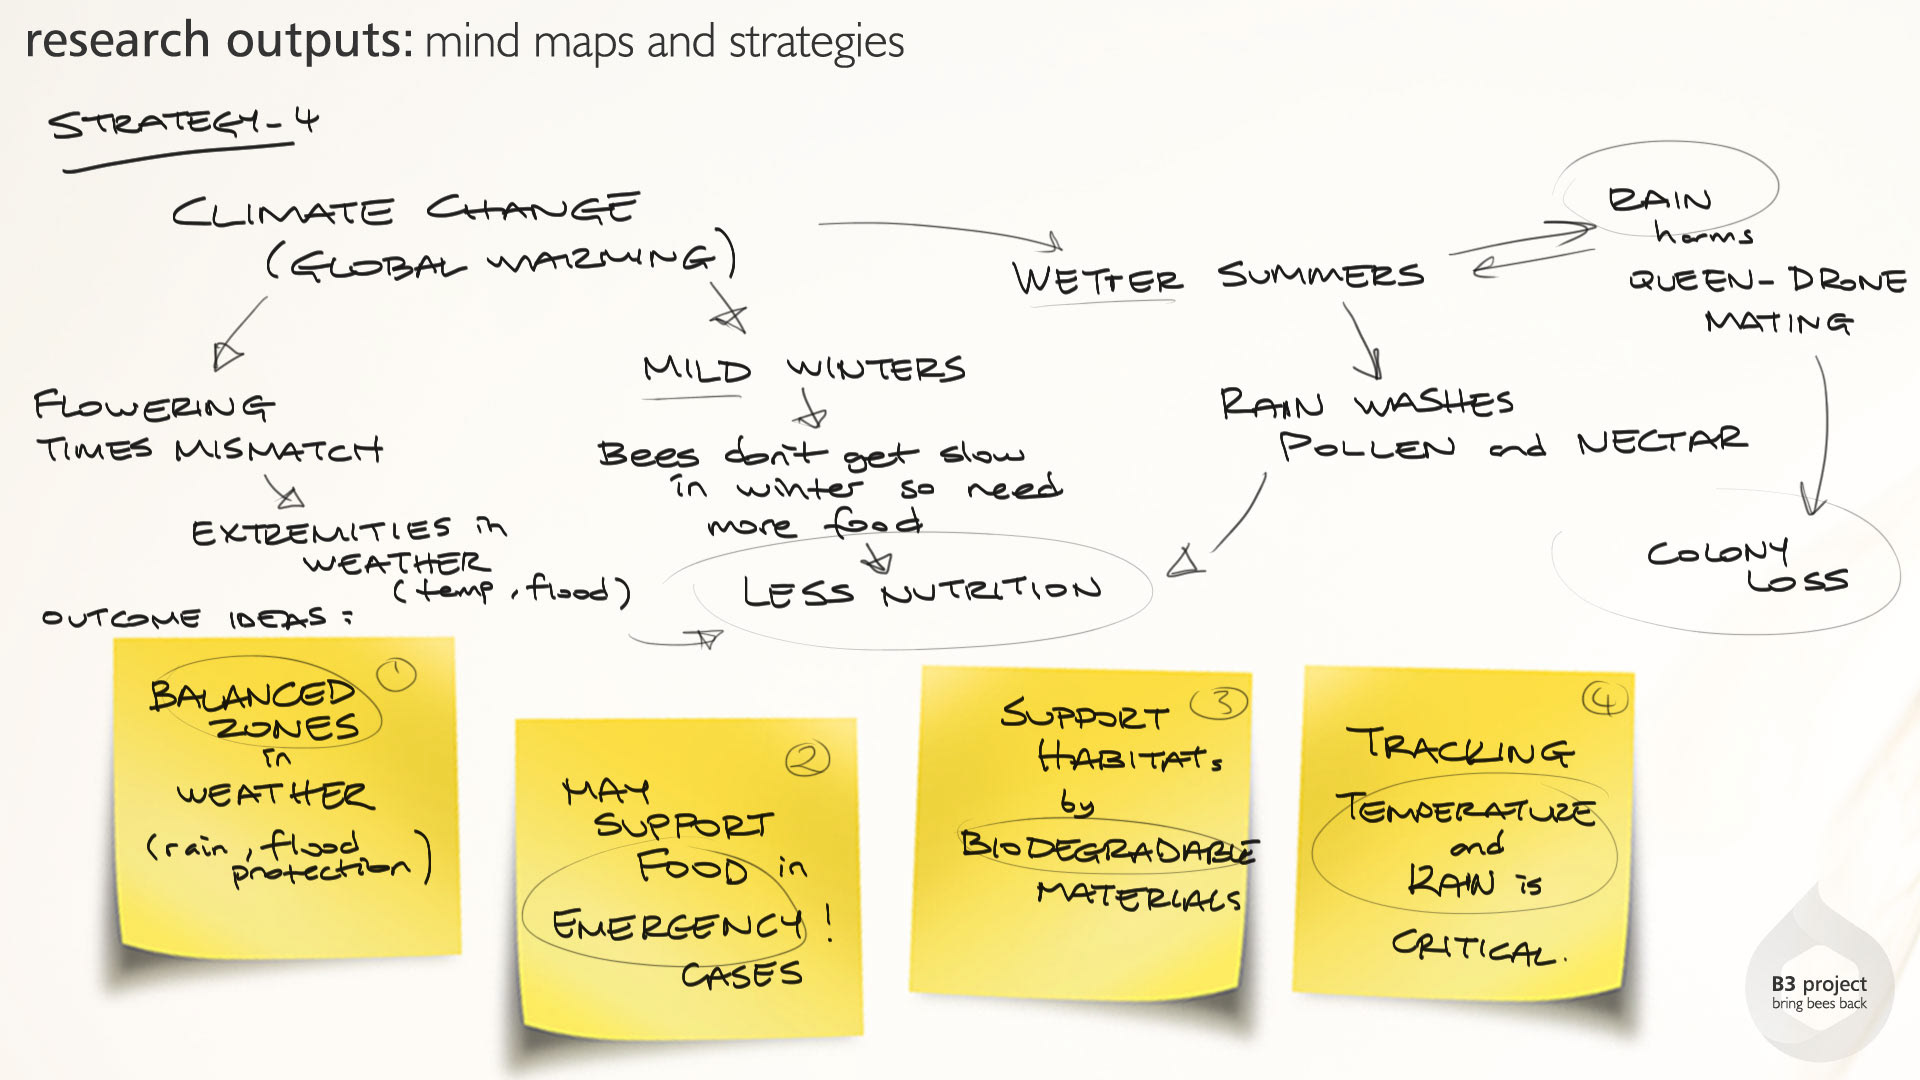 research outputs: mind maps and strategies
STRATEGY-4
CLIMATE CHANGE
(GLOBAL WARMING)
FLOWERING
TIMES MISMATCH
EXTREMITIES in
WEATHER
(temp, flood)
MILD WINTERS
Bees don't get slow
in winter so need
more food
LESS NUTRITION
WETTER SUMMERS
RAIN WASHES
POLLEN and NECTAR
RAIN
harms
QUEEN-DRONE
MATING
COLONY
LOSS
OUTCOME IDEAS:
1
BALANCED
ZONES
in
WEATHER
(rain, flood
protection)
2
MAY
SUPPORT
FOOD in
EMERGENCY!
CASES
3
SUPPORT
HABITATs
by
BIODEGRADABLE
MATERIALS
4
TRACKING
TEMPERATURE
and
RAIN is
CRITICAL.
B3 project
bring bees back